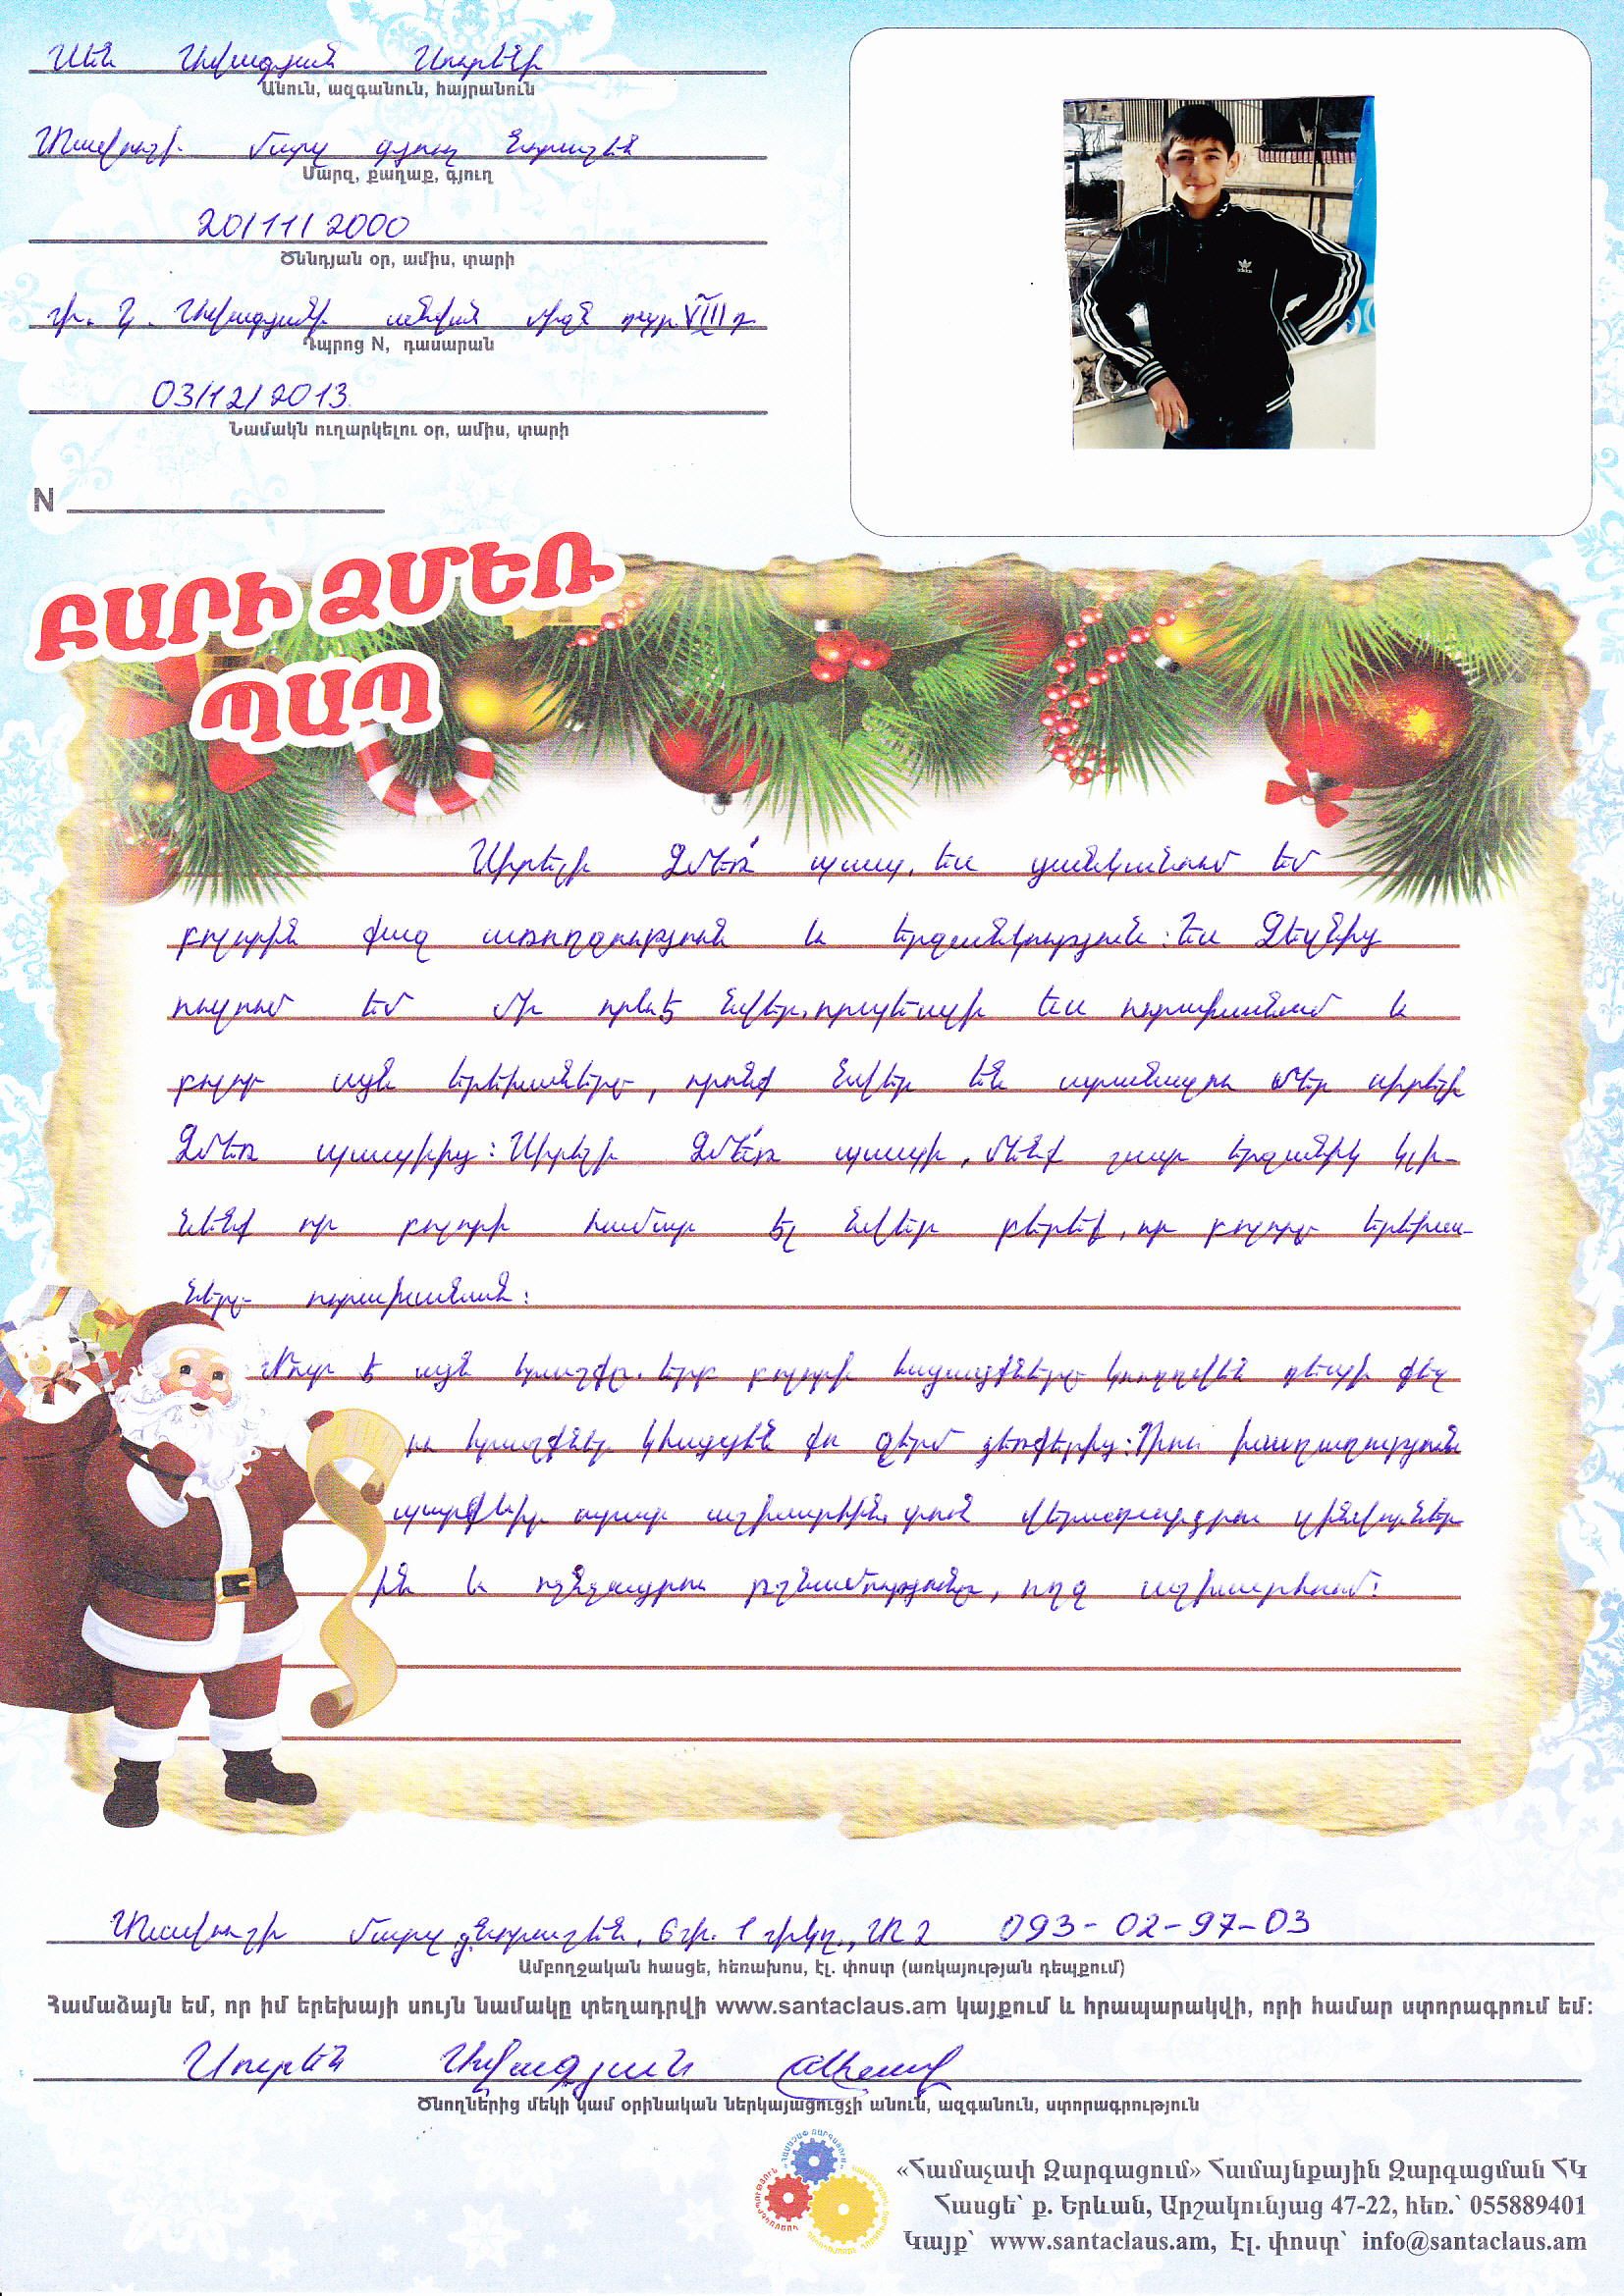 Սեն Ավագյան Սուրենի
Անուն, ազգանուն, հայրանուն
Տավուշի մարզ գյուղ Նորաշեն
Մարզ, քաղաք, գյուղ
20/11/2000
Ծննդյան օր, ամիս, տարի
Ավագյանի անվան միջն դպր. VIII դ.
Դպրոց N, դասարան
03/12/2013
Նամակն ուղարկելու օր, ամիս, տարի
N
ԲԱՐԻ ՁՄԵՌ
ՊԱՊ
Սիրելի Ձմեռ պապ, ես ցանկանում եմ
բոլորին քաջ առողջություն և երջանկություն: Ես Ձեզնից
ուզում եմ մի որևէ նվեր, որպեսզի ես ուրախանամ և
բոլոր այն երեխաները, որոնք նվեր են ստանալու մեր սիրելի
Ձմեռ պապիից: Սիրելի Ձմեռ պապի, մենք շատ երջանիկ կլի-
նենք որ բոլորի համար էլ նվեր բերեք, որ բոլոր երեխա-
ները ուրախանան:
Նուր է այն հրաշքը, երբ բոլորի հայացքները կուղղվեն դեպի քեզ
ու հրաշքներ կհայցեն քո ջերմ ձեռքերից: Դու խաղաղություն
պարգևիր ողջ աշխարհին, տուն վերադարձրու զինվորներ
ին և ոչնչացրու թշնամությունը, ողջ աշխարհում:
Տավուշի մարզ գ. Նորաշեն, 6 փ. 1 փկղ., Տ 2 093-02-97-03
Ամբողջական հասցե, հեռախոս, էլ. փոստ (առկայության դեպքում)
Համաձայն եմ, որ իմ երեխայի սույն նամակը տեղադրվի www.santaclaus.am կայքում և հրապարակվի, որի համար ստորագրում եմ:
Սուրեն Ավագյան
Ծնողներից մեկի կամ օրինական ներկայացուցչի անուն, ազգանուն, ստորագրություն
«Համաչափ Զարգացում» Համայնքային Զարգացման ՀԿ
Հասցե՝ ք. Երևան, Արշակունյաց 47-22, հեռ.՝ 055889401
Կայք՝ www.santaclaus.am, էլ. փոստ՝ info@santaclaus.am